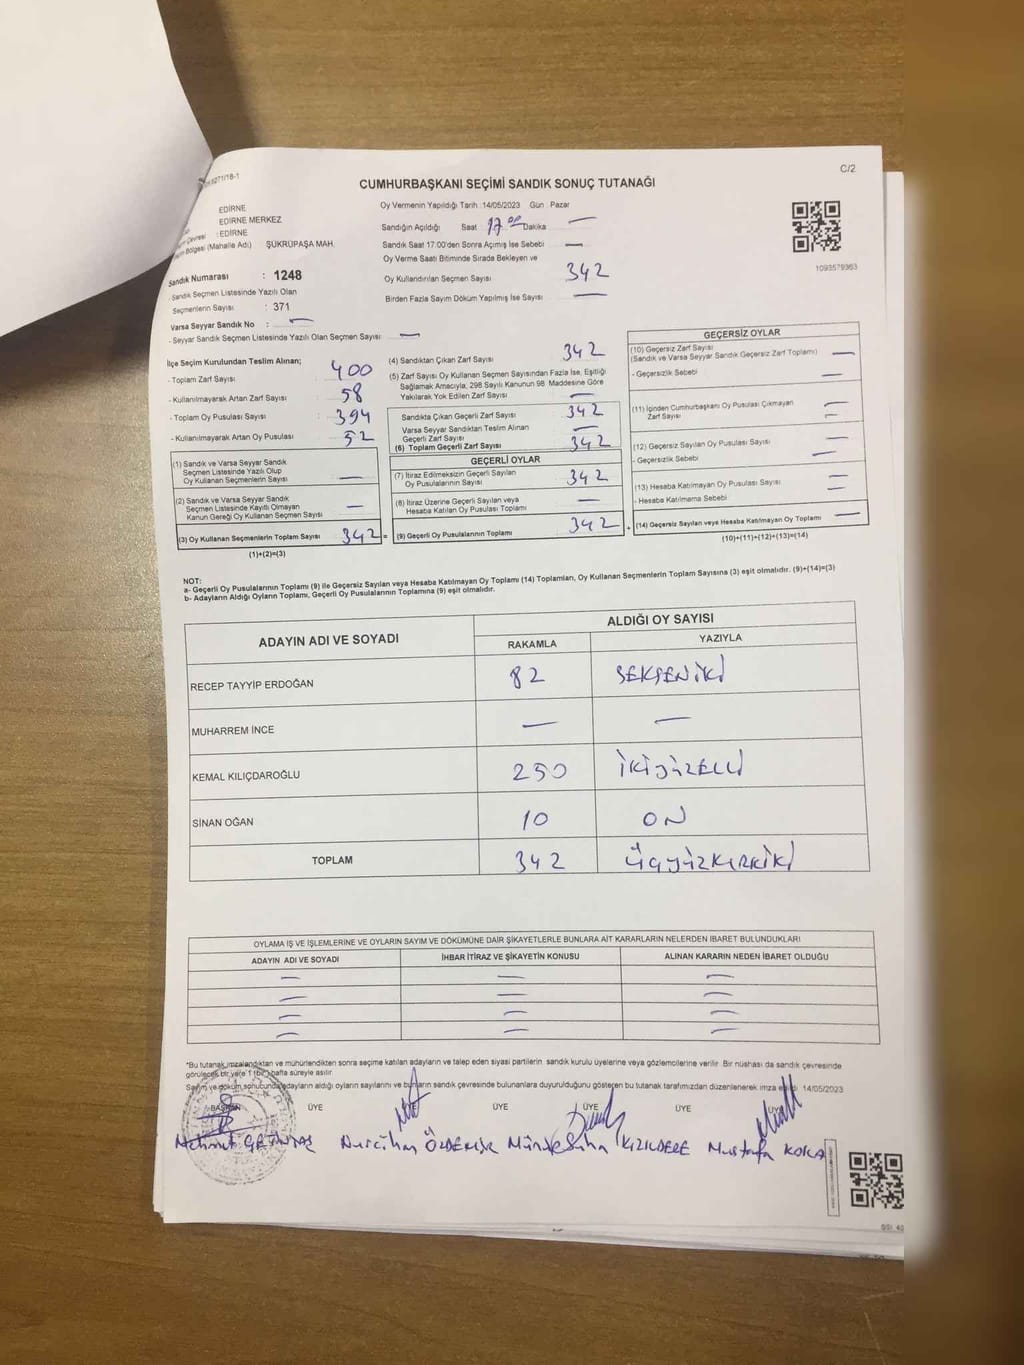 C/2
CUMHURBAŞKANI SEÇİMİ SANDIK SONUÇ TUTANAĞI
EDİRNE
EDİRNE MERKEZ
: EDİRNE
(Mahalle Adı) : ŞÜKRÜPAŞA MAH.
Sandık Numarası : 1248
- Sandık Seçmen Listesinde Yazılı Olan
Seçmenlerin Sayısı : 371
Varsa Seyyar Sandık No : —
- Seyyar Sandık Seçmen Listesinde Yazılı Olan Seçmen Sayısı —
Oy Vermenin Yapıldığı Tarih :14/05/2023 Gün : Pazar
Sandığın Açıldığı Saat 17.00 Dakika —
Sandık Saat 17:00'den Sonra Açımış İse Sebebi —
Oy Verme Saati Bitiminde Sırada Bekleyen ve
Oy Kullandırılan Seçmen Sayısı 342
Birden Fazla Sayım Döküm Yapılmış İse Sayısı —
1093579363
İlçe Seçim Kurulundan Teslim Alınan;
- Toplam Zarf Sayısı : 400
- Kullanılmayarak Artan Zarf Sayısı : 58
- Toplam Oy Pusulası Sayısı : 394
- Kullanılmayarak Artan Oy Pusulası : 52
(1) Sandık ve Varsa Seyyar Sandık
Seçmen Listesinde Yazılı Olup
Oy Kullanan Seçmenlerin Sayısı —
(2) Sandık ve Varsa Seyyar Sandık
Seçmen Listesinde Kayıtlı Olmayan
Kanun Gereği Oy Kullanan Seçmen Sayısı —
(3) Oy Kullanan Seçmenlerin Toplam Sayısı 342 =
(1)+(2)=(3)
(4) Sandıktan Çıkan Zarf Sayısı 342
(5) Zarf Sayısı Oy Kullanan Seçmen Sayısından Fazla İse, Eşitliği
Sağlamak Amacıyla, 298 Sayılı Kanunun 98. Maddesine Göre
Yakılarak Yok Edilen Zarf Sayısı —
Sandıkta Çıkan Geçerli Zarf Sayısı 342
Varsa Seyyar Sandıktan Teslim Alınan
Geçerli Zarf Sayısı —
(6) Toplam Geçerli Zarf Sayısı 342
GEÇERLİ OYLAR
(7) İtiraz Edilmeksizin Geçerli Sayılan
Oy Pusulalarının Sayısı 342
(8) İtiraz Üzerine Geçerli Sayılan veya
Hesaba Katılan Oy Pusulası Toplamı —
(9) Geçerli Oy Pusulalarının Toplamı 342 +
GEÇERSİZ OYLAR
(10) Geçersiz Zarf Sayısı
(Sandık ve Varsa Seyyar Sandık Geçersiz Zarf Toplamı) —
- Geçersizlik Sebebi —
(11) İçinden Cumhurbaşkanı Oy Pusulası Çıkmayan
Zarf Sayısı —
(12) Geçersiz Sayılan Oy Pusulası Sayısı —
- Geçersizlik Sebebi —
(13) Hesaba Katılmayan Oy Pusulası Sayısı —
- Hesaba Katılmama Sebebi —
(14) Geçersiz Sayılan veya Hesaba Katılmayan Oy Toplamı —
(10)+(11)+(12)+(13)=(14)
NOT:
a- Geçerli Oy Pusulalarının Toplamı (9) ile Geçersiz Sayılan veya Hesaba Katılmayan Oy Toplamı (14) Toplamları, Oy Kullanan Seçmenlerin Toplam Sayısına (3) eşit olmalıdır. (9)+(14)=(3)
b- Adayların Aldığı Oyların Toplamı, Geçerli Oy Pusulalarının Toplamına (9) eşit olmalıdır.
ADAYIN ADI VE SOYADI ALDIĞI OY SAYISI
RAKAMLA YAZIYLA
RECEP TAYYİP ERDOĞAN 82 SEKSENİKİ
MUHARREM İNCE — —
KEMAL KILIÇDAROĞLU 250 İKİYÜZELLİ
SİNAN OĞAN 10 ON
TOPLAM 342 ÜÇYÜZKIRKİKİ
OYLAMA İŞ VE İŞLEMLERİNE VE OYLARIN SAYIM VE DÖKÜMÜNE DAİR ŞİKAYETLERLE BUNLARA AİT KARARLARIN NELERDEN İBARET BULUNDUKLARI
ADAYIN ADI VE SOYADI İHBAR İTİRAZ VE ŞİKAYETİN KONUSU ALINAN KARARIN NEDEN İBARET OLDUĞU
— — —
— — —
— — —
— — —
*Bu tutanak imzalandıktan ve mühürlendikten sonra seçime katılan adayların ve talep eden siyasi partilerin sandık kurulu üyelerine veya gözlemcilerine verilir. Bir nüshası da sandık çevresinde
görülecek bir yere 1 (bir) hafta süreyle asılır.
Sayım ve döküm sonucunda adayların aldığı oyların sayılarını ve bunların sandık çevresinde bulunanlara duyurulduğunu gösteren bu tutanak tarafımızdan düzenlenerek imza edildi. 14/05/2023
BAŞKAN ÜYE ÜYE ÜYE ÜYE ÜYE ÜYE
Nurcihan ÖZDEMİR KIZILDERE Mustafa KOKA